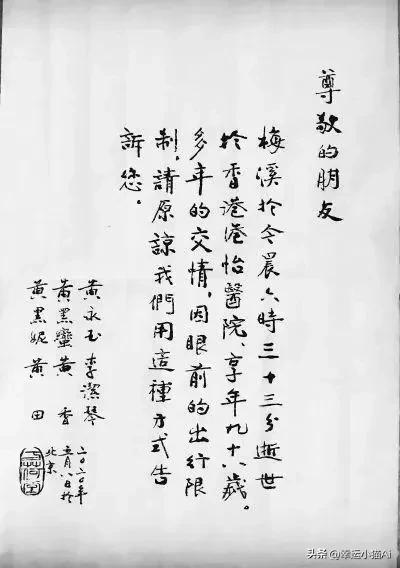 尊敬的朋友
梅溪於今晨六時三十三分逝世
於香港港怡醫院、享年九十八歲。
多年的交情，因眼前的出行限
制，請原諒我們用這種方式告
訴您。
黄永玉 李潔琴
黄黑蠻 黄香
黄黑妮 黄田
二〇二〇年
五月八日於
北京
头条@幸运小猫Ai